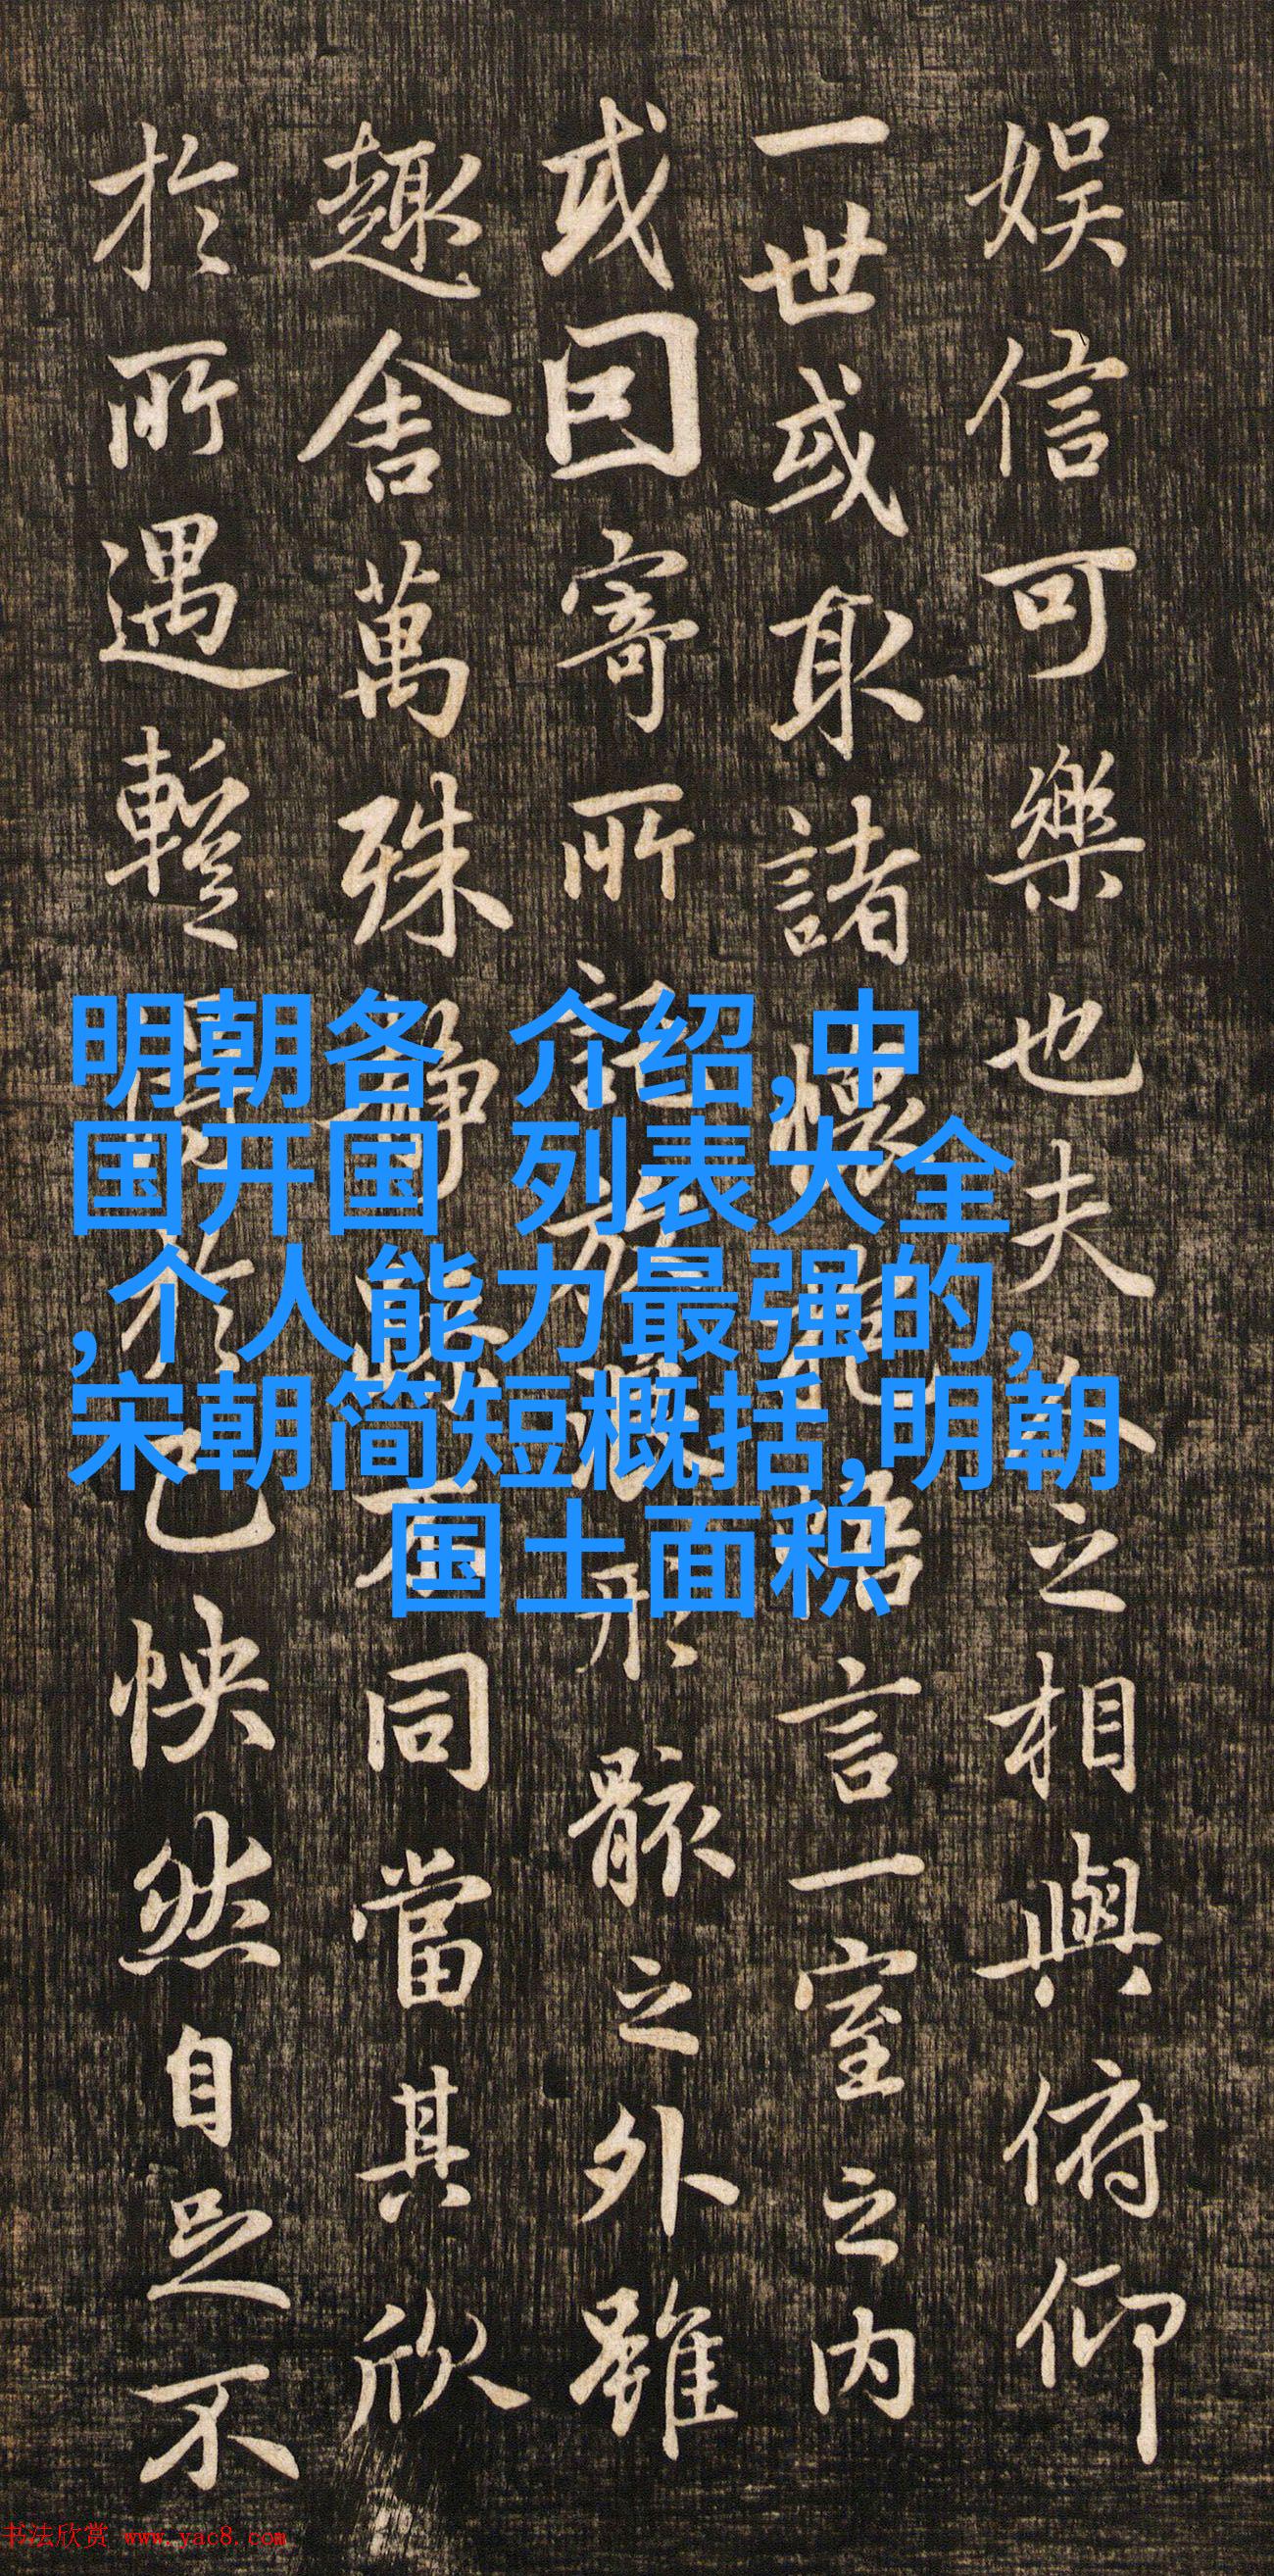 娱信可樂也夫人之相與俯仰
一世或取諸懷抱悟言一室之内
或因寄所託放浪形骸之外雖
趣舍萬殊靜躁不同當其欣
於所遇暫得於己怏然自足不
明朝各 介绍,中
国开国 列表大全
,个人能力最强的,
宋朝简短概括,明朝
国土面积
书法欣赏 www.yac8.com